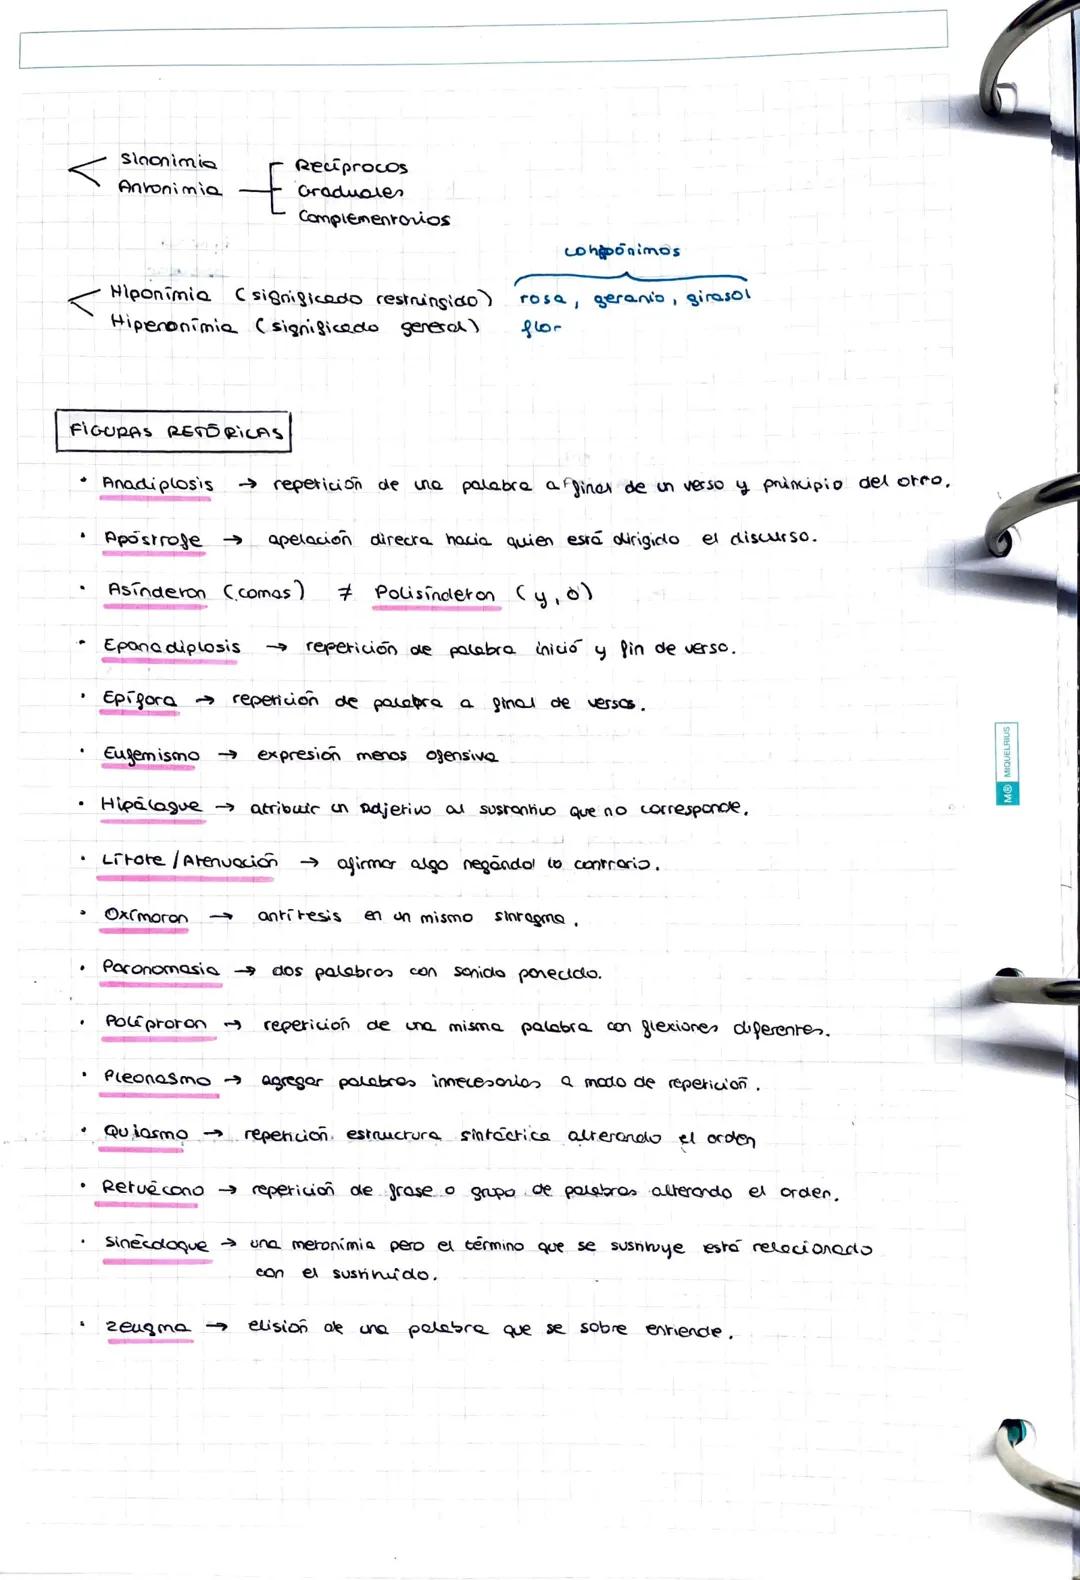 Sinonimia
Antonimia
Recíprocos
Graduales
Complementarios
cohipónimos
Hiponimia (significado restringido) rosa, geranio, girasol
Hiperonimia (significado general) flor
FIGURAS RETÓRICAS
• Anadiplosis → repetición de una palabra a final de un verso y principio del otro.
• Apóstrofe → apelación directa hacia quien está dirigido el discurso.
• Asíndeton (comas) ≠ Polisíndeton (y, o)
• Epanadiplosis → repetición de palabra inicio y fin de verso.
• Epífora → repetición de palabra a final de versos.
• Eufemismo → expresión menos ofensiva
• Hipálague → atribuir un adjetivo al sustantivo que no corresponde.
• Lítote / Atenuación → afirmar algo negándol lo contrario.
• Oxímoron → antítesis en un mismo sintagma.
• Paronomasia → dos palabras con sonido parecido.
• Políptoton → repetición de una misma palabra con flexiones diferentes.
• Pleonasmo → agregar palabras innecesarias a modo de repetición.
• Quiasmo → repetición estructura sintáctica alterando el orden
• Retruécano → repetición de frase o grupo de palabras alterando el orden.
• Sinécdoque → una metonimia pero el término que se sustituye está relacionado
con el sustituido.
• Zeugma → elisión de una palabra que se sobre entiende.
M® MIQUELRIUS